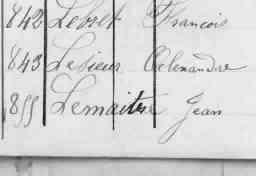 842 Lebret François
843 Lesieur Alexandre
855 Lemaitre Jean